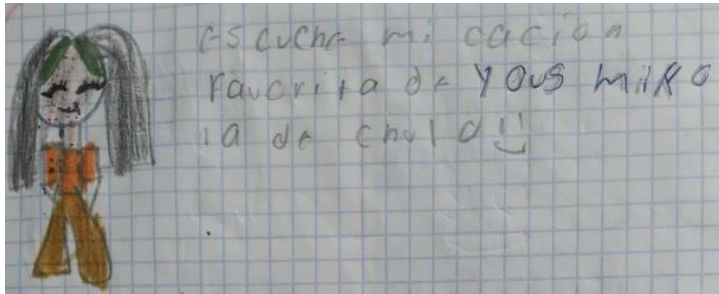 escuche mi cacion
Favorita de YOUS MilKO
la de chulo